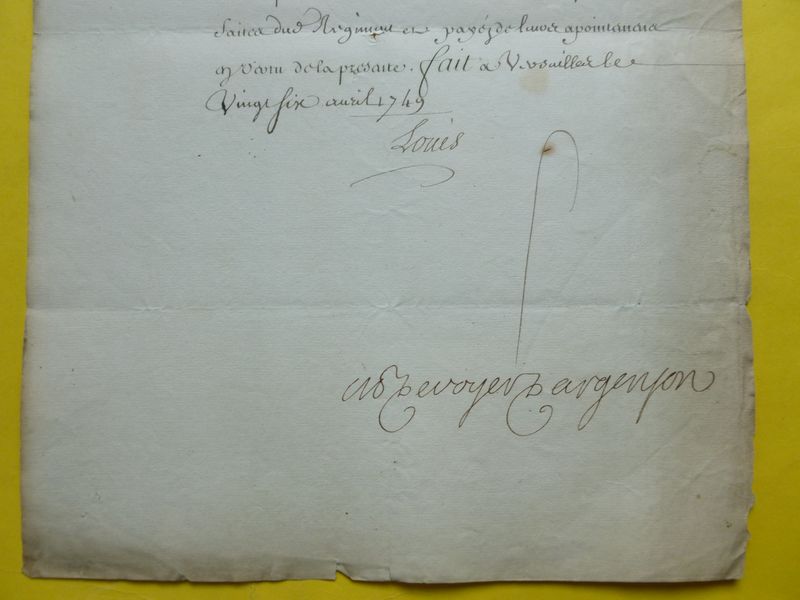 faites dud Regiment et payés de leurs apointemens
en vertu de la presente. fait a Versailles le
Vingt six avril 1749
Louis
M P De voyer D'argenson